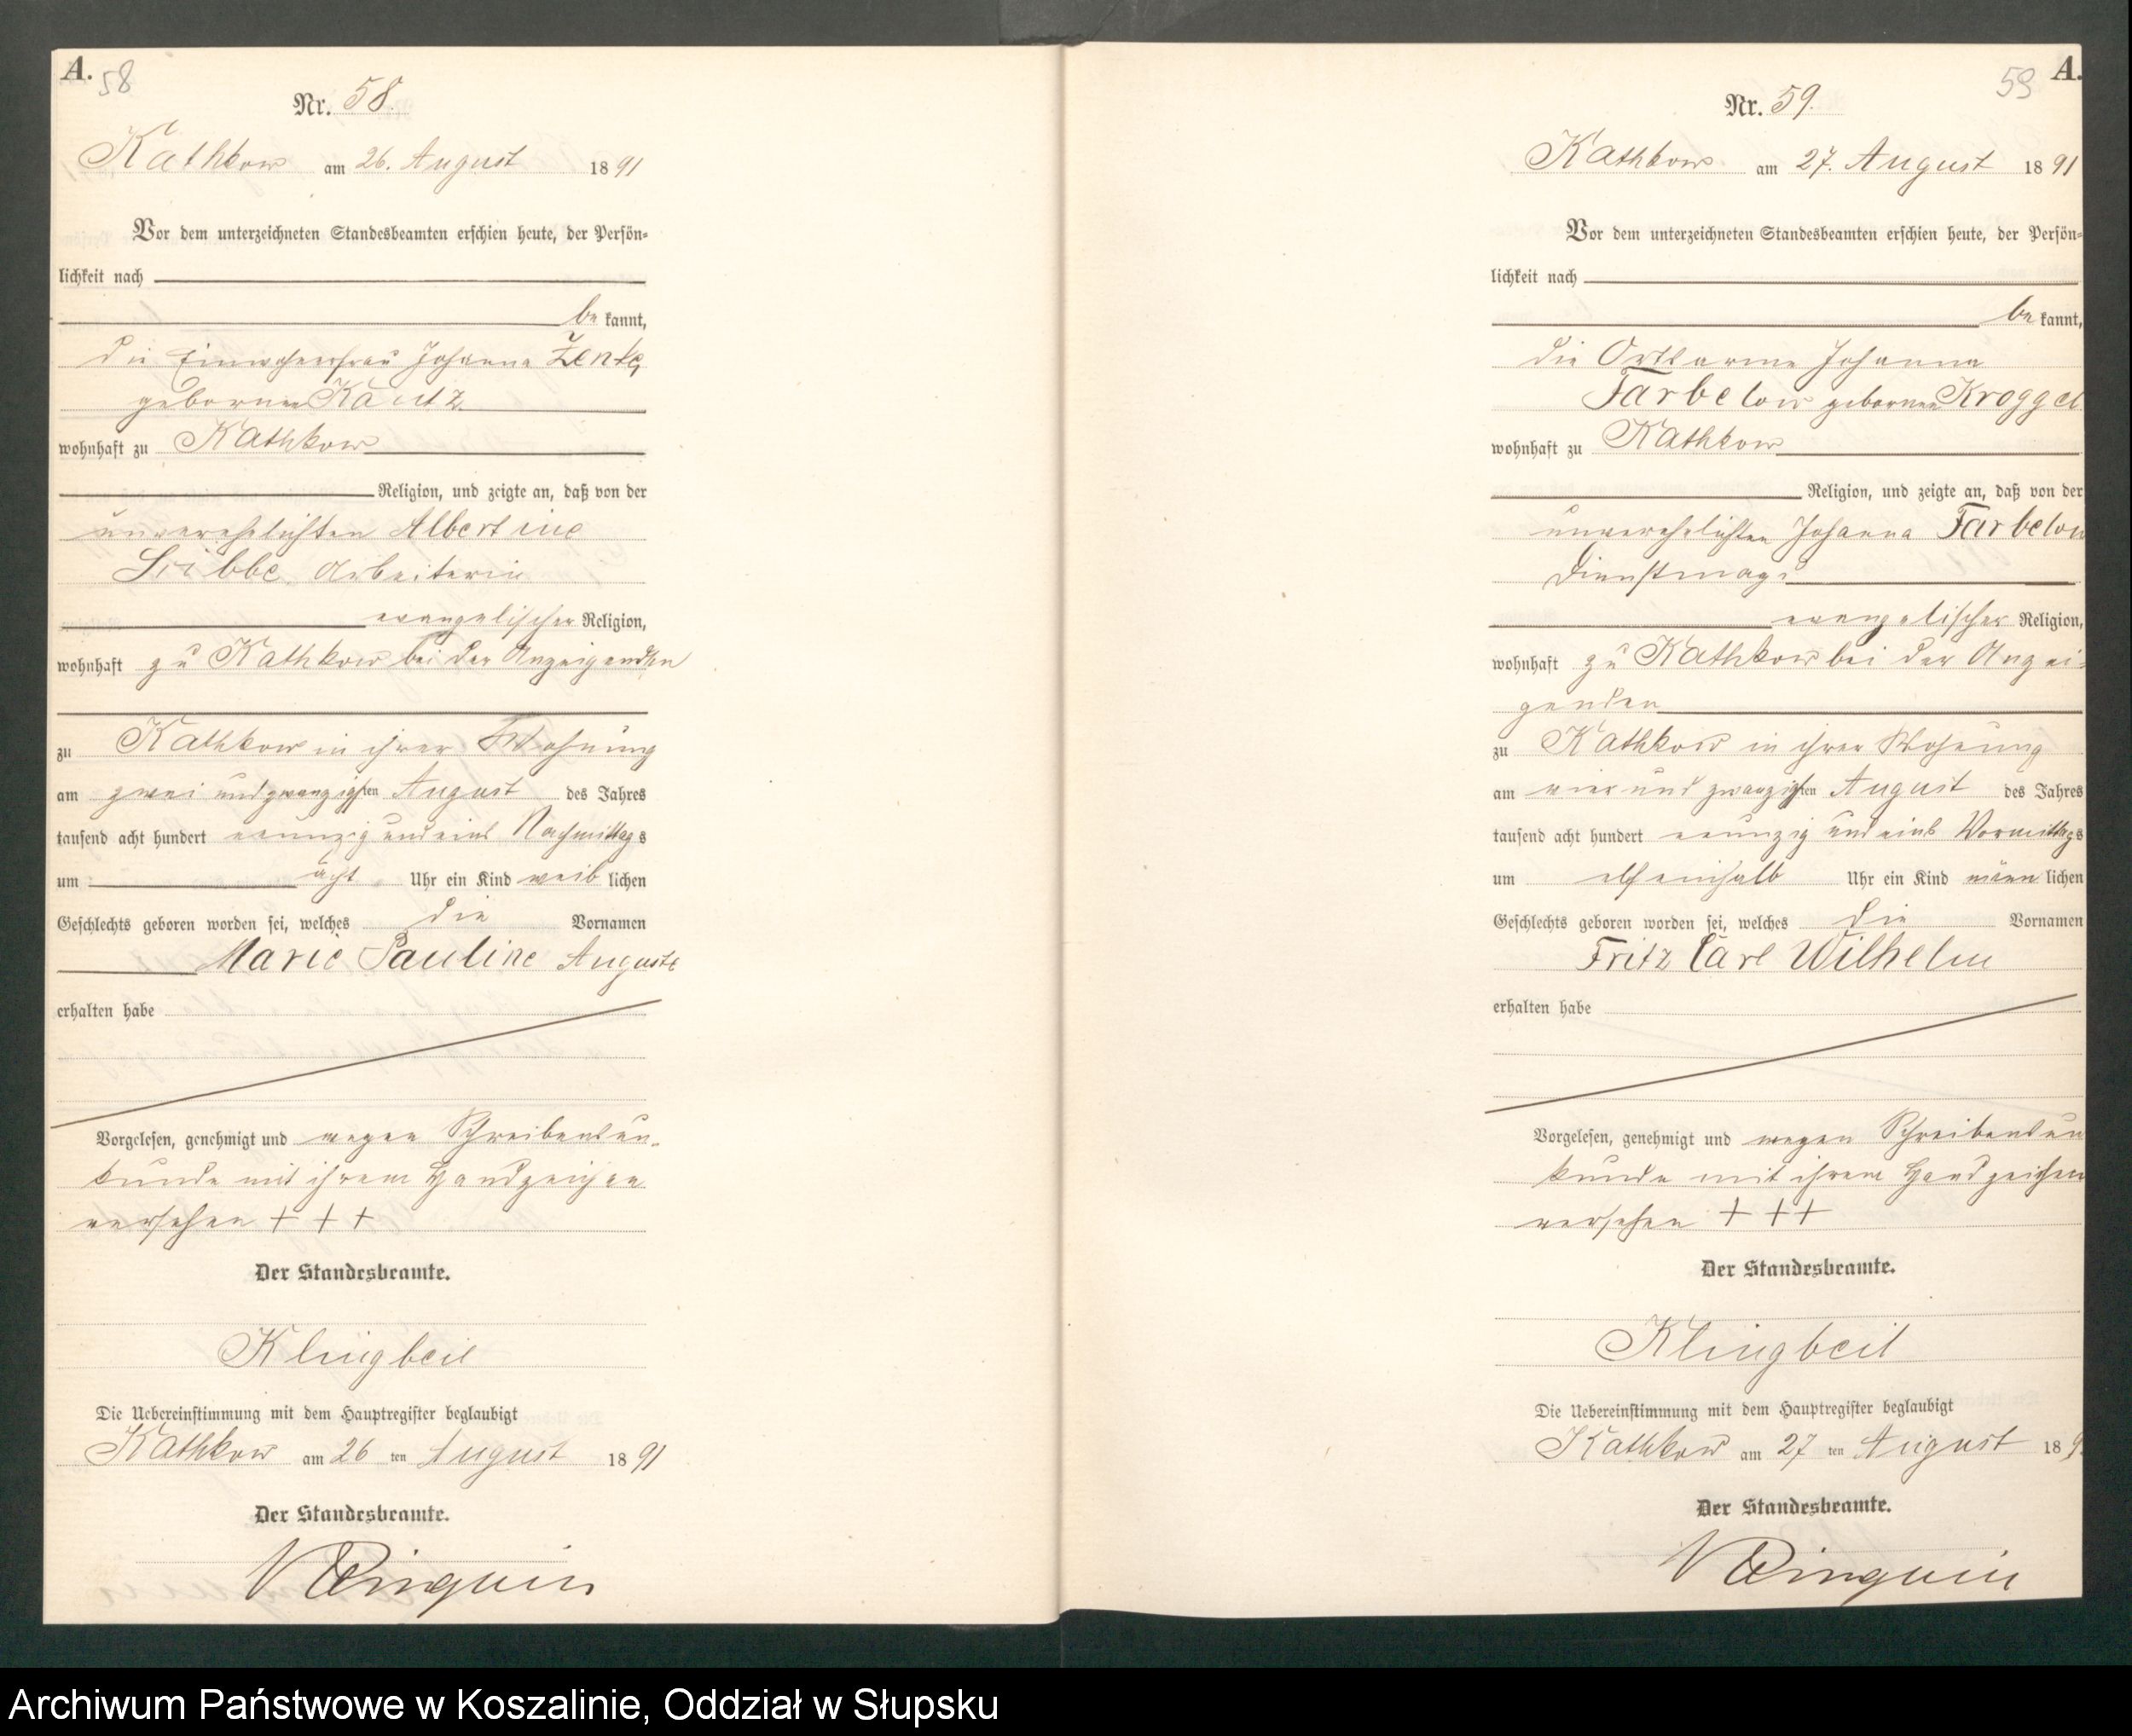 A.
58
Nr. 58.
Kathkow am 26. August 1891
Vor dem unterzeichneten Standesbeamten erschien heute, der Persön-
lichkeit nach
be kannt,
die Einwohnerfrau Johanna Zenke,
geborenen Kautz
wohnhaft zu Kathkow
Religion, und zeigte an, daß von der
unverehelichten Albertine
Arbeiterin
evangelischer Religion,
wohnhaft zu Kathkow bei der Anzeigenden
zu Kathkow in ihrer Wohnung
am zwei und zwanzigsten August des Jahres
tausend acht hundert neunzig und eins Nachmittags
um acht Uhr ein Kind weiblichen
Geschlechts geboren worden sei, welches die Vornamen
Marie Pauline Auguste
erhalten habe
Vorgelesen, genehmigt und wegen Schreibensun-
kunde mit ihrem Handzeichen
versehen + + +
Der Standesbeamte.
Klingbeil
Die Uebereinstimmung mit dem Hauptregister beglaubigt
Kathkow am 26 ten August 1891
Der Standesbeamte.
A.
59
Nr. 59.
Kathkow am 27. August 1891
Vor dem unterzeichneten Standesbeamten erschien heute, der Persön-
lichkeit nach
be kannt,
die Ortsarme Johanna
Farbelow geborenen Kroggel
wohnhaft zu Kathkow
Religion, und zeigte an, daß von der
unverehelichten Johanna Farbelow
Dienstmagd
evangelischer Religion,
wohnhaft zu Kathkow bei der Anzei-
genden
zu Kathkow in ihrer Wohnung
am vier und zwanzigsten August des Jahres
tausend acht hundert neunzig und eins Vormittags
um elf einhalb Uhr ein Kind männlichen
Geschlechts geboren worden sei, welches die Vornamen
Fritz Carl Wilhelm
erhalten habe
Vorgelesen, genehmigt und wegen Schreibensun
kunde mit ihrem Handzeichen
versehen + + +
Der Standesbeamte.
Klingbeil
Die Uebereinstimmung mit dem Hauptregister beglaubigt
Kathkow am 27 ten August 189
Der Standesbeamte.
Archiwum Państwowe w Koszalinie, Oddział w Słupsku